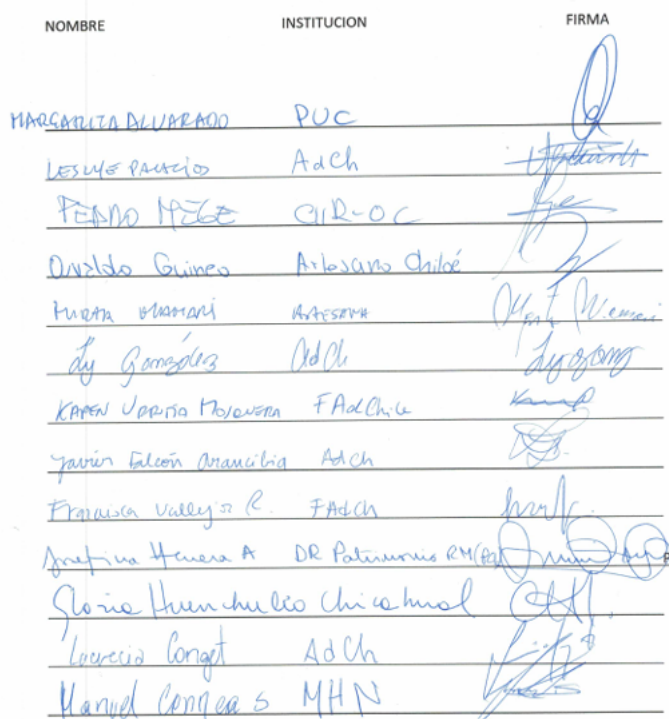 NOMBRE INSTITUCION FIRMA
MARGARITA ALVARADO PUC
LESLYE PALACIOS AdCh
PEDRO MEGE CIIR-OC
Osvaldo Guineo Artesano Chiloé
MAMANI ARTESANA
Ly González AdCh Lygonz
KAREN URRUTIA MOSQUERA FAdChile
Javier Falcón Arancibia AdCh
Francisca Vallejos R. FAdCh
Josefina Herrera A DR Patrimonio RM
Gloria Huenchuleo Chicahual
Lucrecia Conget AdCh
Manuel Correa S MHN